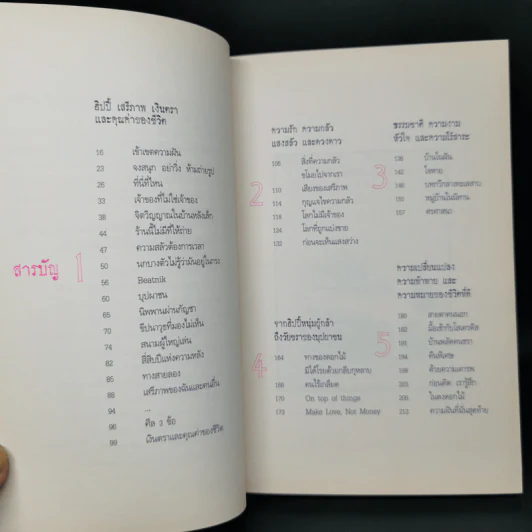 สารบัญ
1
ฮิปปี้ เสรีภาพ เงินตรา
และคุณค่าของชีวิต
16 เข้าเขตความฝัน
23 จงสนุก อย่าวิ่ง ห้ามถ่ายรูป
26 ที่นี่ที่ไหน
33 เจ้าของที่ไม่ใช่เจ้าของ
37 จิตวิญญาณในบ้านหลังเล็ก
44 ร้านนี้ไม่มีที่ให้ถ่าย
47 ความสลัวต้องการเวลา
50 นกบางตัวไม่รู้ว่ามันอยู่ในกรง
56
60 บุปผาชน
61 นิพพานผ่านกัญชา
69 ชีปนาวุธที่มองไม่เห็น
74 สนามผู้ใหญ่เล่น
82 สี่สิบปีแห่งความหลัง
85 ทางสายลอง
86 เสรีภาพของฉันและคนอื่น
94 ...
98 ศีล 3 ข้อ
99 เงินตราและคุณค่าของชีวิต
2
ความรัก ความกลัว
แสงสลัว และดวงดาว
106 สิ่งที่ความกลัว
ขโมยไปจากเรา
110 เสียงของเสรีภาพ
114 กุญแจไขความกลัว
118 โลกไม่มีเจ้าของ
124 โลกที่ถูกแบ่งขาย
132 ก่อนจะเห็นแสงสว่าง
3
ธรรมชาติ ความงาม
หัวใจ และความไร้สาระ
138 บ้านในฝัน
142 ไดทาย
148
150 หมู่บ้านในนิทาน
157 ศรศาสนา
4
จากฮิปปี้หนุ่มผู้กล้า
ถึงวัยชราของบุปผาชน
164 ทางของดอกไม้
มิได้โรยด้วยกลีบกุหลาบ
168 คนไร้เกลียด
170 On top of things
173 Make Love, Not Money
5
ความเปลี่ยนแปลง
ความท้าทาย และ
ความหมายของชีวิตที่ดี
180 สายตาคนนอก
182 เมื่อเช้ากับไดสตาติล
191 บ้านพลัดคนชรา
194 คืนพิเศษ
198 ด้วยความเคารพ
205 ก่อนคิด เรารู้สึก
206 ในดงดอกไม้
212 ความฝันที่ฝันสุดท้าย